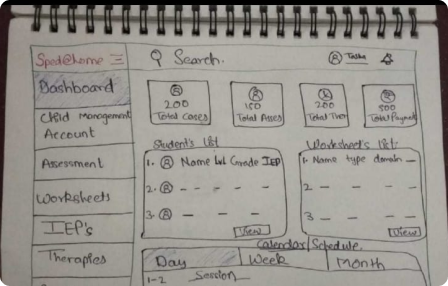 Sped@home
Search.
Tasks
Dashboard
Child Management
Account
Assessment
Worksheets
IEP's
Therapies
200
Total Cases
150
Total Asses
200
Total Ther
500
Total Payment
Student's List
1. Name lvl Grade IEP
2.
3.
View
Worksheet's list:
1. Name type domain
2
3
View
Calendar/Schedule.
Day Week Month
1-2 Session